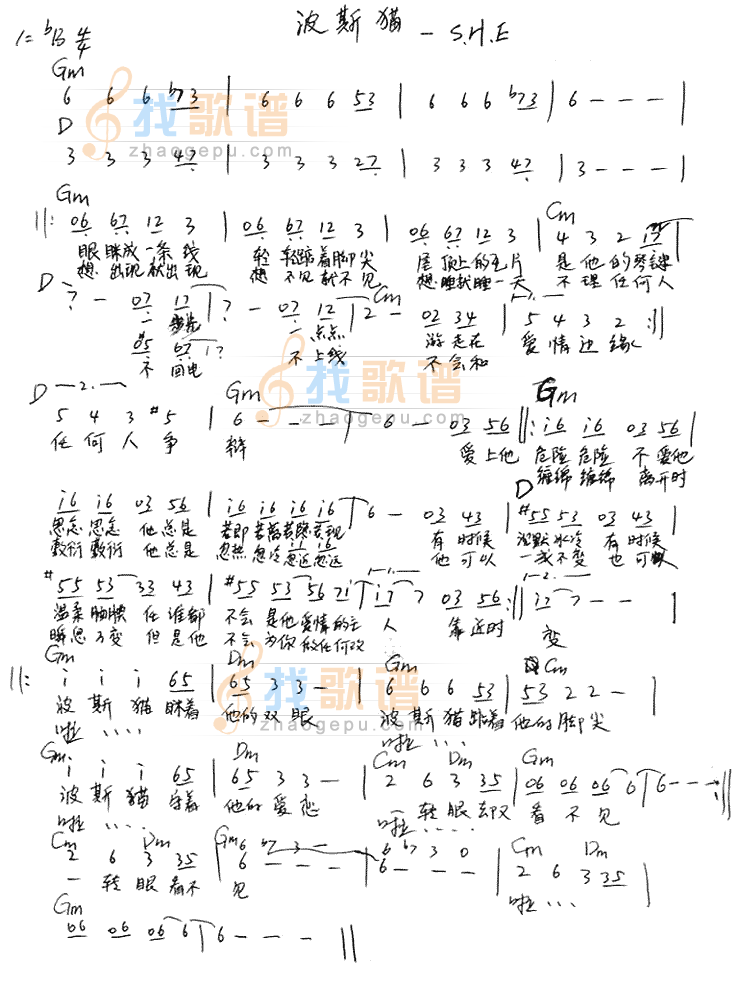 波斯猫 - S.H.E
1=ᵇB 4/4
Gm
6 6 6 ᵇ73 | 6 6 6 53 | 6 6 6 ᵇ73 | 6 - - - |
D
3 3 3 47 | 3 3 3 27 | 3 3 3 47 | 3 - - - |
Gm Cm
||: 06 67 12 3 | 06 67 12 3 | 06 67 12 3 | 4 3 2 17 |
眼眯成一条线 轻轻踮着脚尖 屋顶上的瓦片 是他的琴键
想出现就出现 想不见就不见 想睡就睡一天 不理任何人
D Cm 1.
7 - 07 17 | 7 - 07 12 | 2 - 02 34 | 5 4 3 2 :||
一步步 一点点 游走在 爱情边缘
#5 67 | 7
不回电 不上线 不会和
D 2. Gm Gm
5 4 3 #5 | 6 - - - | 6 - 03 56 ||: i6 i6 03 56 |
任何人争 辩 爱上他 危险危险 不爱他
缠绵缠绵 离开时
D
i6 i6 03 56 | i6 i6 i6 i6 | 6 - 03 43 | #55 53 03 43 |
思念思念 他总是 若即若离若隐若现 有时候 沉默冰冷 有时候
敷衍敷衍 他总是 忽热忽冷忽近忽远 他可以 一成不变 也可以
1. 2.
#55 53 33 43 | #55 53 56 7i | i7 7 03 56 :|| i7 7 - - |
温柔腼腆 任谁都 不会是他爱情的主 人 靠近时 变
瞬息万变 但是他 不会为你做任何改
Gm Dm Gm Cm
||: i i i 65 | 65 3 3 - | 6 6 6 53 | 53 2 2 - |
波斯猫眯着 他的双眼 波斯猫踮着 他的脚尖
啦 .... 啦 ....
Gm Dm Cm Dm Gm
i i i 65 | 65 3 3 - | 2 6 3 35 | 06 06 06 6 | 6 - - - :||
波斯猫守着 他的爱恋 一转眼却又 看不见
啦 .... 啦 ....
Cm Dm Gm Cm Dm
6 ᵇ7 3 - 6 ᵇ7 3 0
2 6 3 35 | 6 - - - | 6 - - - | 2 6 3 35 |
一转眼看不 见 啦 ...
Gm
06 06 06 6 | 6 - - - ||
找歌谱
zhaogepu.com
找歌谱
zhaogepu.com
找歌谱
zhaogepu.com
找歌谱
zhaogepu.com
找歌谱
zhaogepu.com
找歌谱
zhaogepu.com
找歌谱
zhaogepu.com